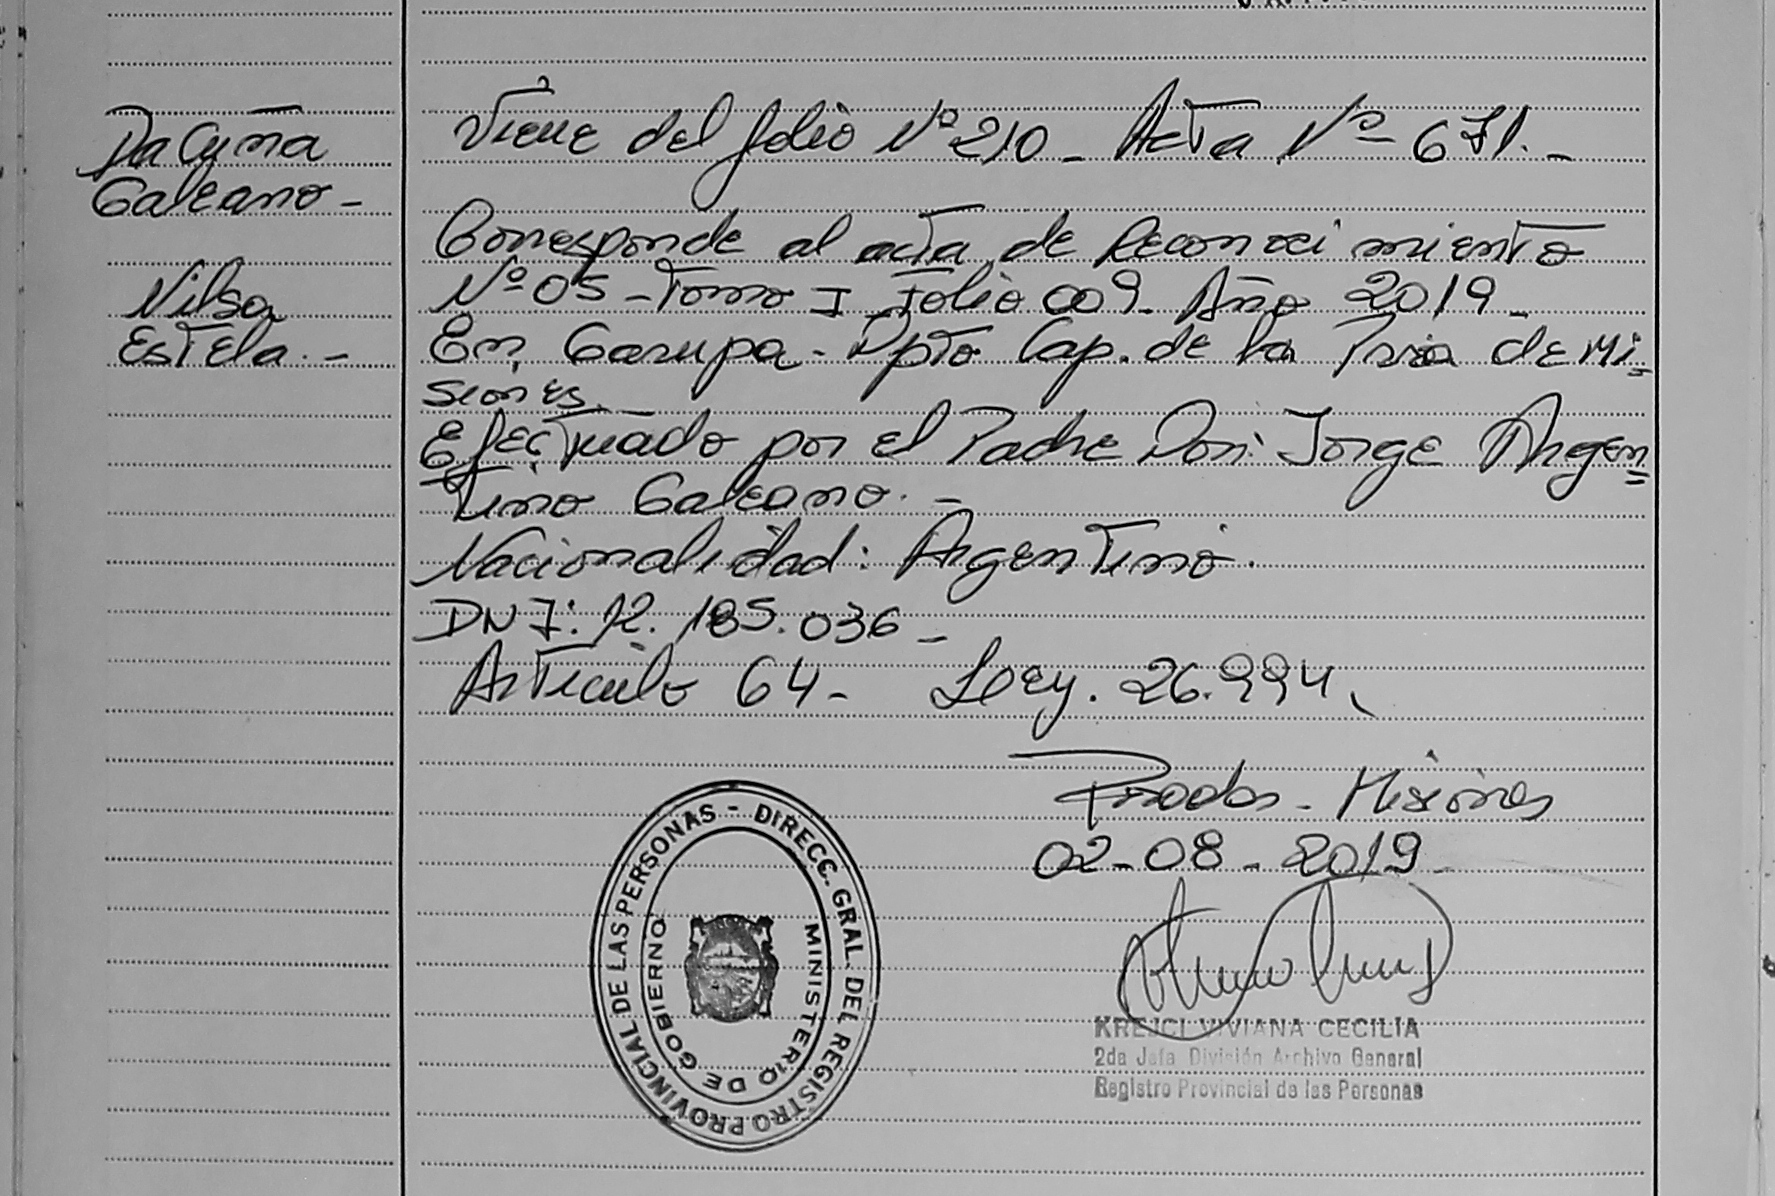 Da Cuña
Galeano -
Nilsa
Estela. -
Viene del folio Nº 210 - Acta Nº 671. -
Corresponde al acta de Reconocimiento
Nº 05 - Tomo I Folio 009 - Año 2019 -
En Garupa - Dpto Cap. de la Pvia de Mi-
siones.
Efectuado por el Padre Don: Jorge Argen=
tino Galeano. -
Nacionalidad: Argentino.
DNI: 12.185.036 -
Articulo 64 - Ley. 26.994
Posadas - Misiones
02-08-2019
DIRECC. GRAL. DEL REGISTRO PROVINCIAL DE LAS PERSONAS -
MINISTERIO DE GOBIERNO
KREJCI VIVIANA CECILIA
2da Jefa División Archivo General
Registro Provincial de las Personas